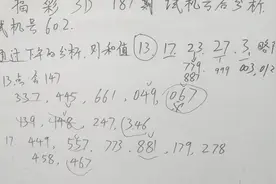 福彩 3D 187期 试机号后分析
试机号 602.
通过下午的分析,则和值 13. 17 23. 27. 3. 略
779 999 003, 012
881
13点有147
337, 445, 661, 049, 067
439, 148, 247, 346
17. 449, 557. 773. 881, 179, 278
458, 467